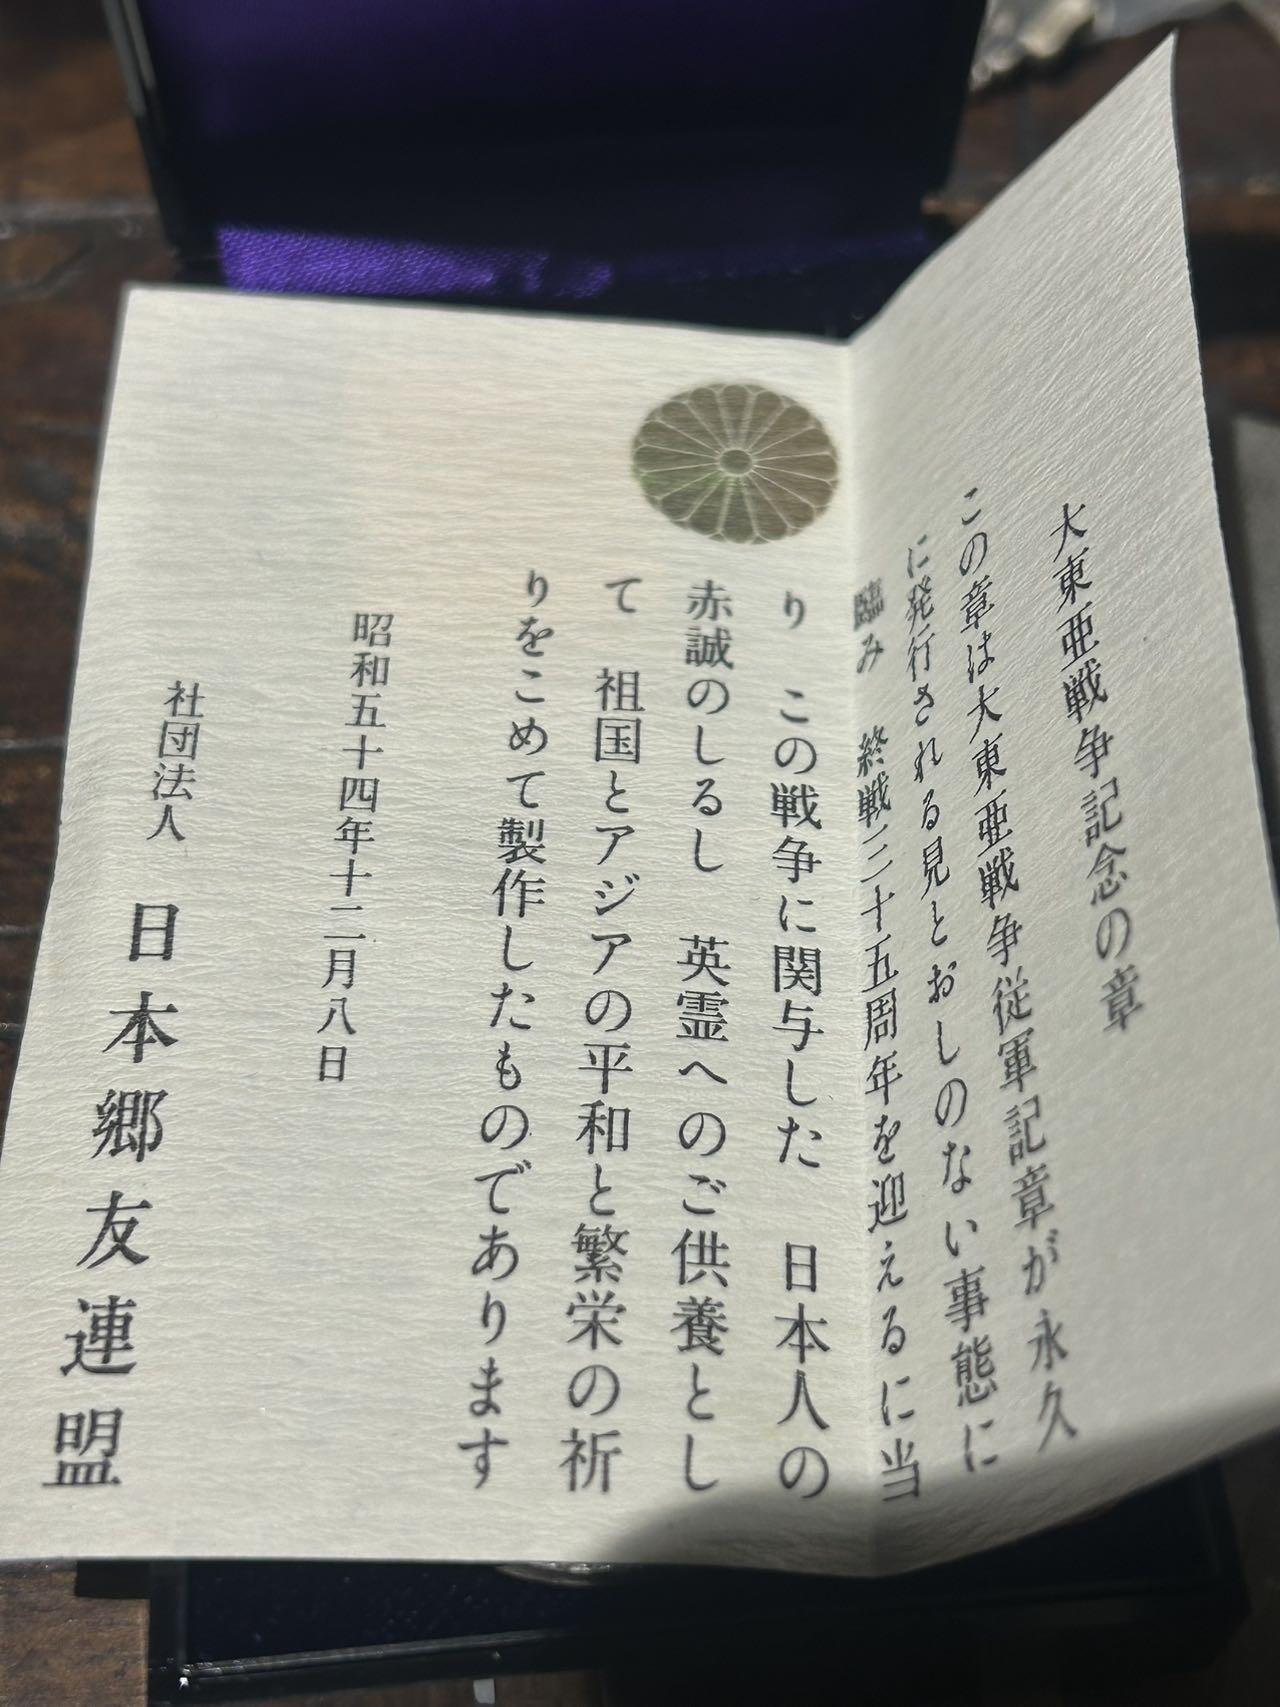 大東亜戦争記念の章
この章は大東亜戦争従軍記章が永久
に発行される見とおしのない事態に
臨み　終戦三十五周年を迎えるに当
り　この戦争に関与した　日本人の
赤誠のしるし　英霊へのご供養とし
て　祖国とアジアの平和と繁栄の祈
りをこめて製作したものであります
昭和五十四年十二月八日
社団法人　日本郷友連盟